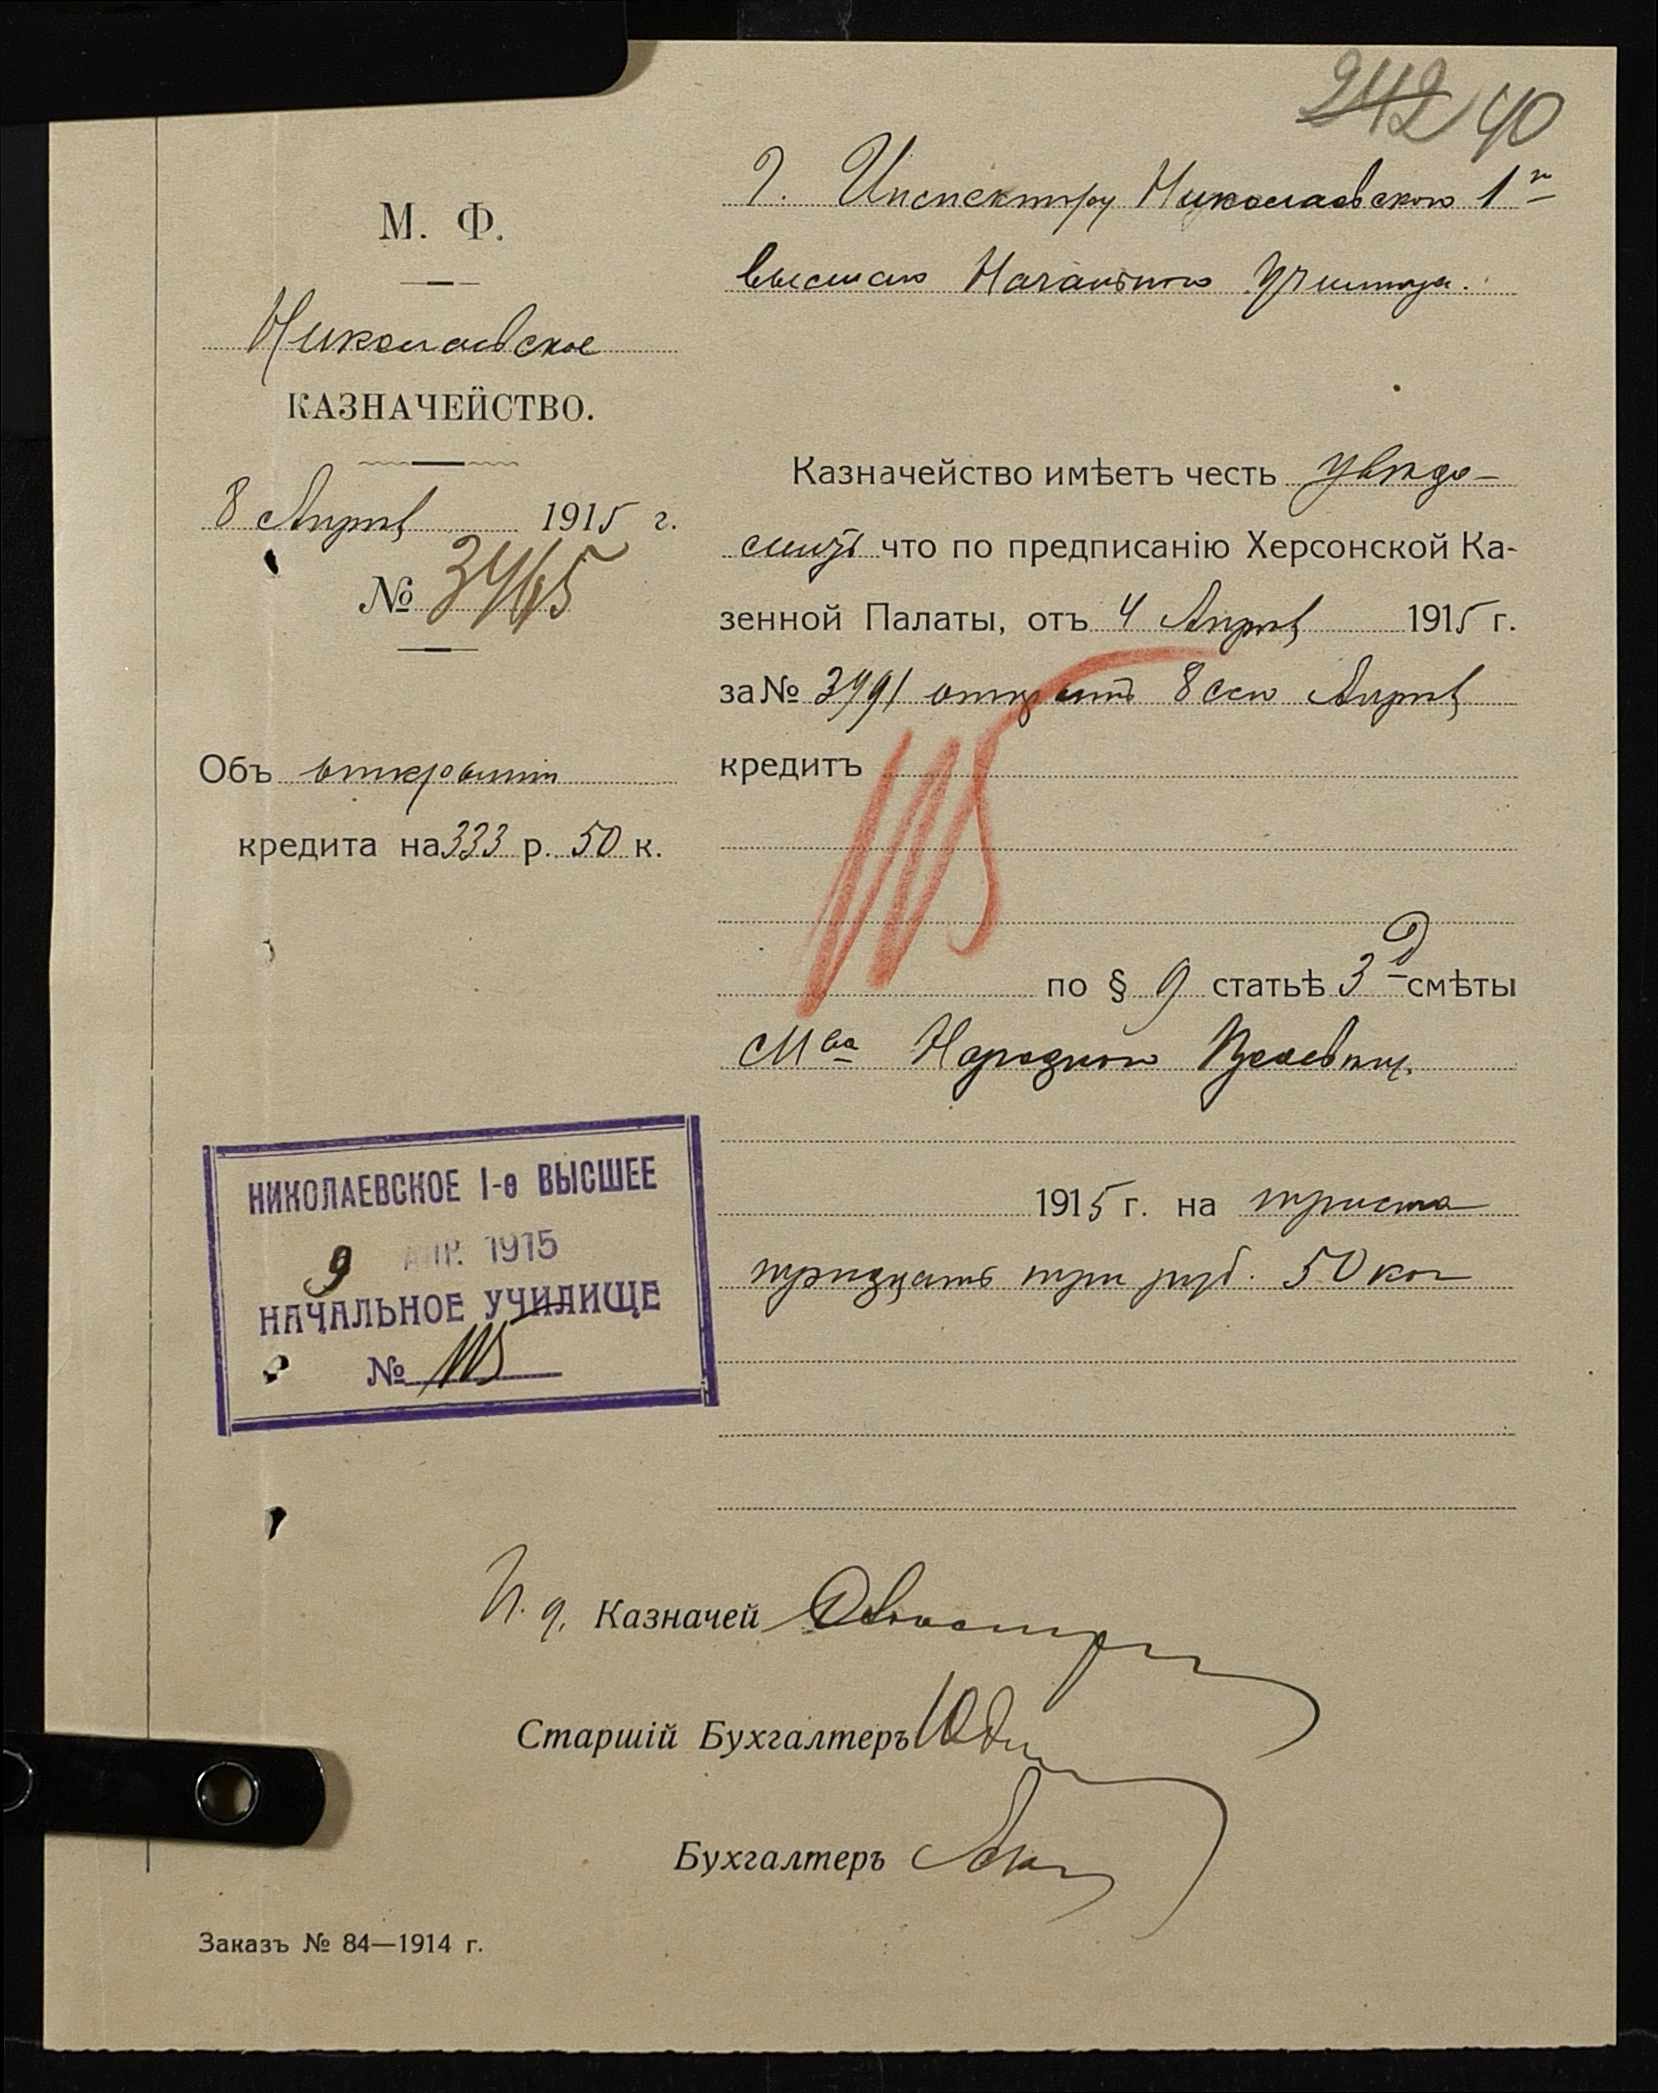 242 40
М. Ф.
Николаевское
КАЗНАЧЕЙСТВО.
8 Апрѣля 1915 г.
№ 3465
Объ открытіи
кредита на 333 р. 50 к.
Г. Инспектору Николаевского 1го
высшаго Начальнаго Училища.
Казначейство имѣетъ честь увѣдо-
мить что по предписанію Херсонской Ка-
зенной Палаты, отъ 4 Апрѣля 1915 г.
за № 3491 открытъ 8 сего Апрѣля
кредитъ
115
по § 9 статьѣ 3 смѣты
Мва Народного Просвѣщ.
1915 г. на триста
тридцать три руб. 50 коп
НИКОЛАЕВСКОЕ I-е ВЫСШЕЕ
9 АПР. 1915
НАЧАЛЬНОЕ УЧИЛИЩЕ
№ 115
И. д. Казначей
Старшій Бухгалтеръ
Бухгалтеръ
Заказъ № 84—1914 г.